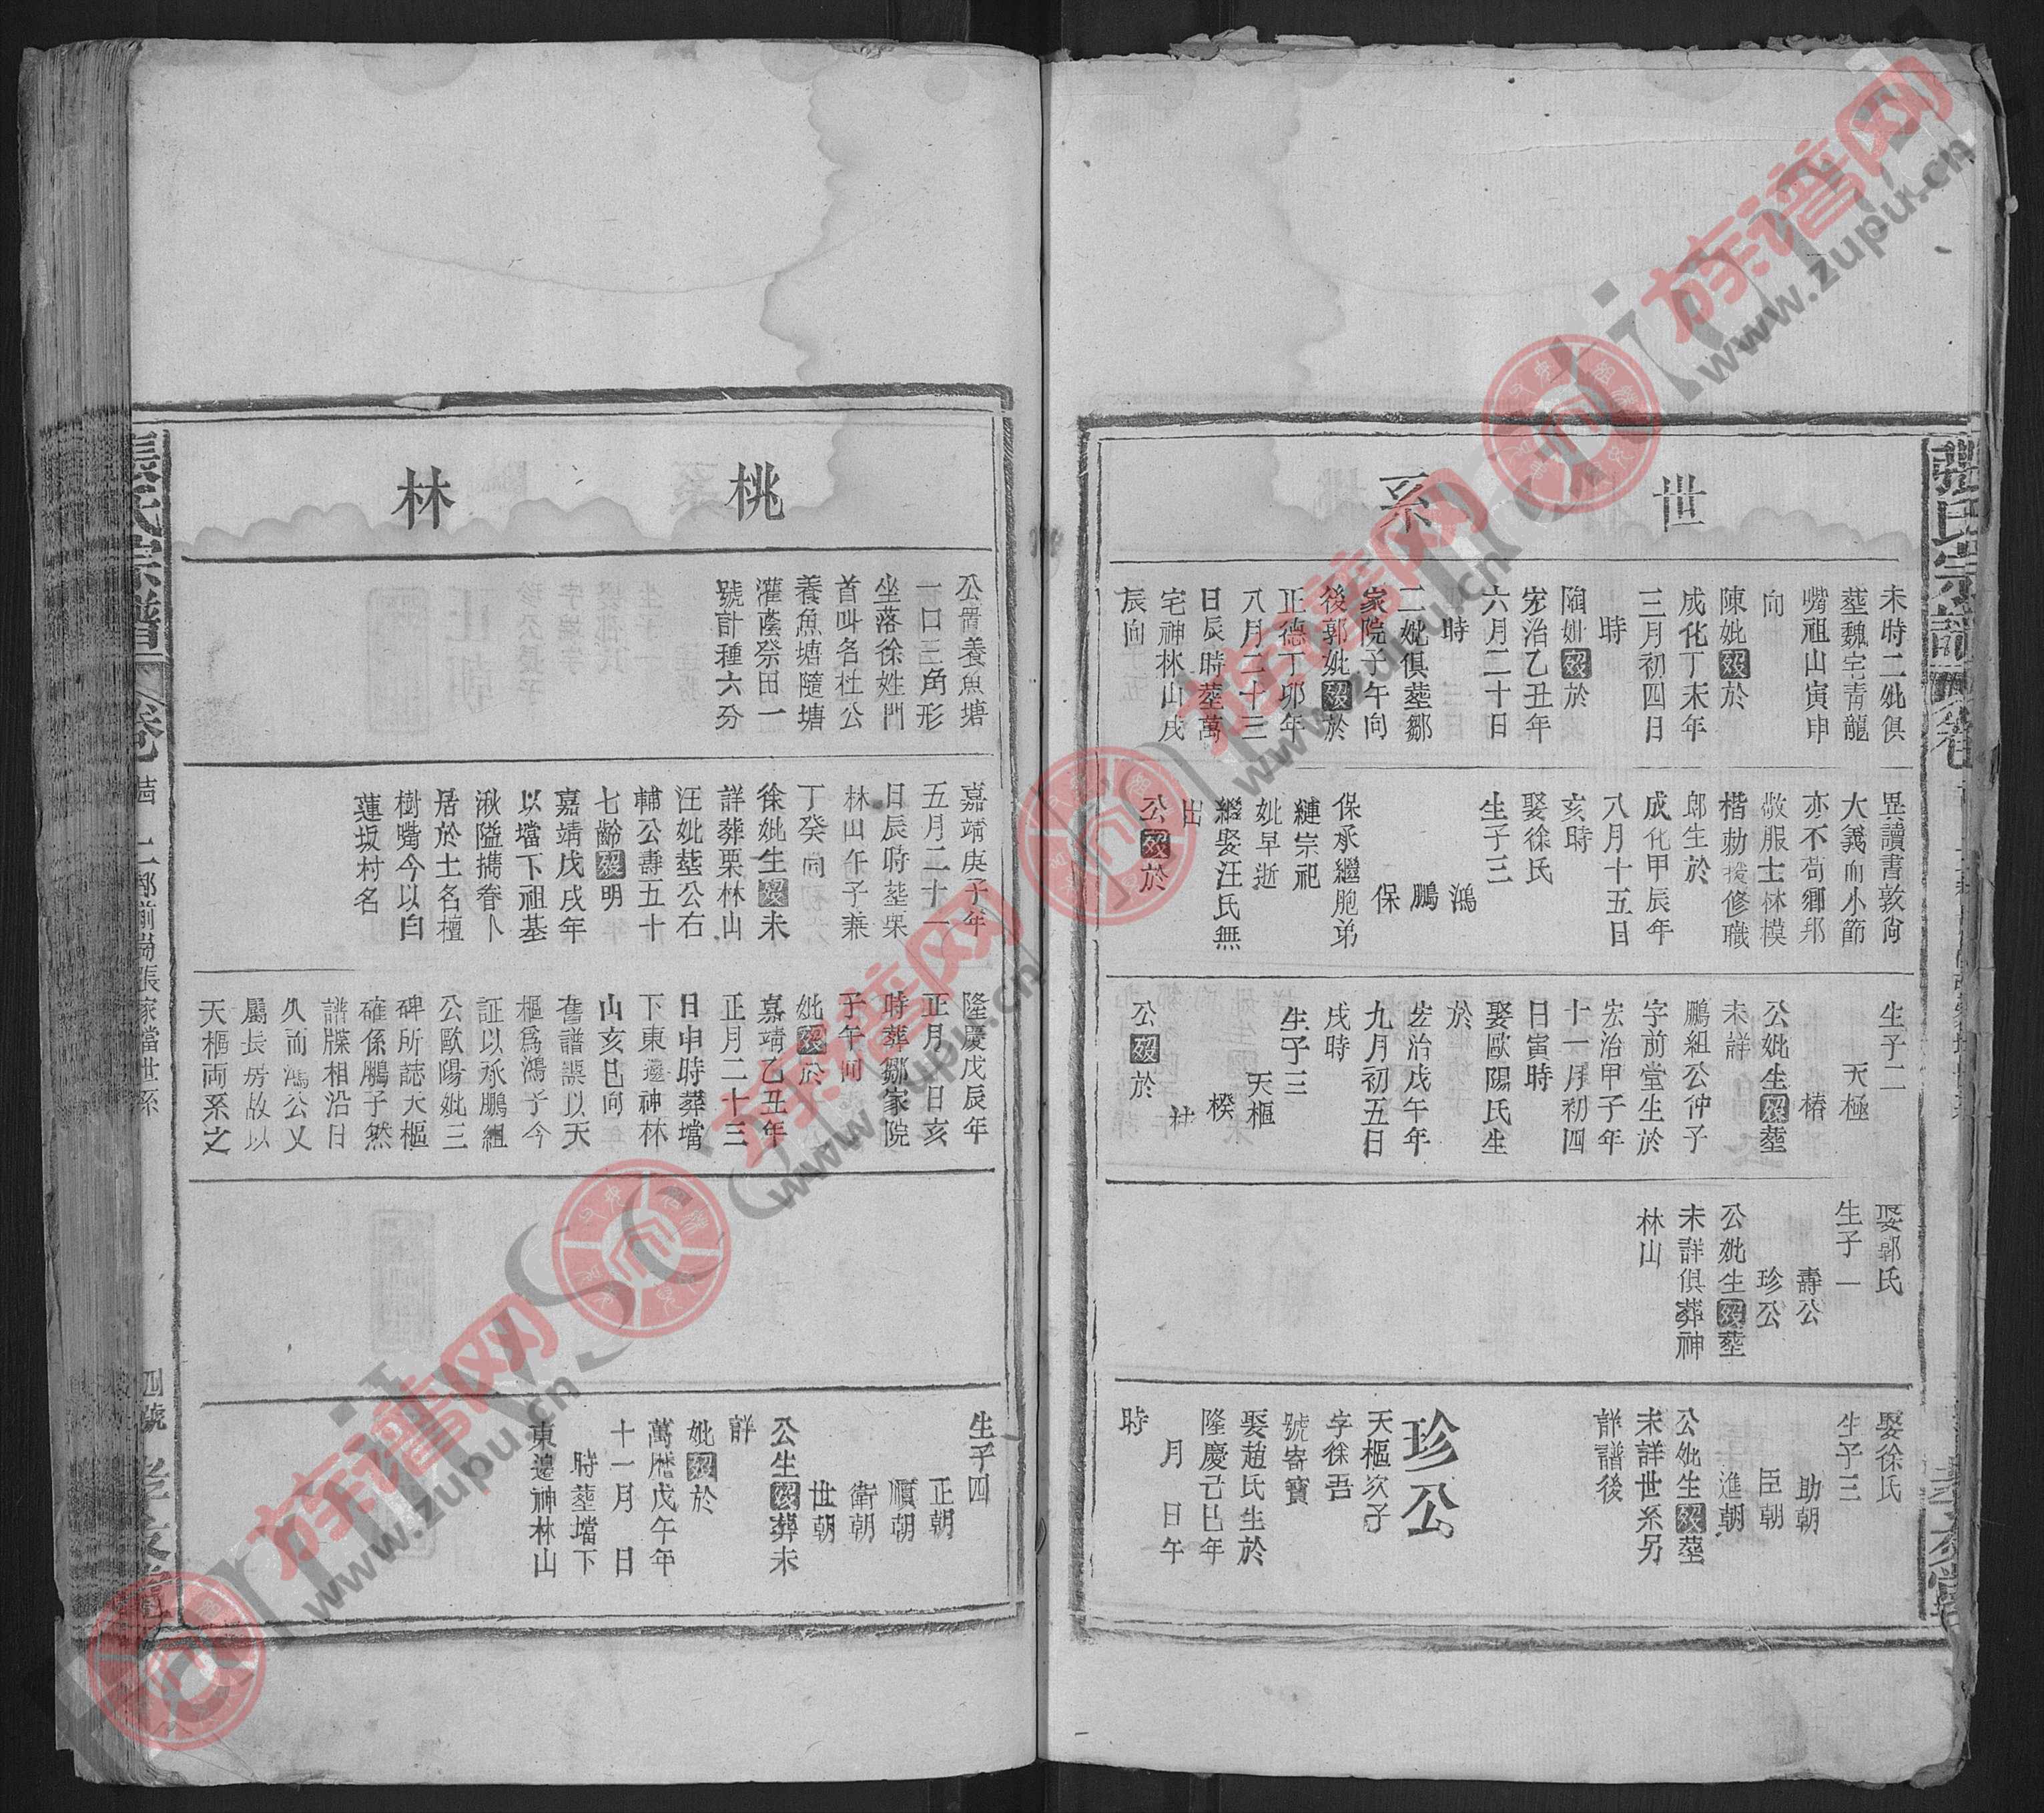 張氏宗譜
世系
未時二妣俱
塟魏宅青龍
嘴祖山寅申
向
陳妣歿於
成化丁未年
三月初四日
時
陷妣歿於
宏治乙丑年
六月二十日
時
二妣俱塟鄒
家院子午向
後郭妣歿於
正德丁卯年
八月二十三
日辰時塟萬
宅神林山戌
辰向
異讀書敦尙
大義而小節
亦不苟鄉邦
敬服士林模
楷勅授修職
郎生於
成化甲辰年
八月十五日
亥時
娶徐氏
生子三
鴻
鵬
保
保承繼胞弟
縺宗祀
妣早逝
繼娶汪氏無
出
公歿於
生子二
天極
椿
公妣生歿塟
未詳
鵬組公仲子
字前堂生於
宏治甲子年
十一月初四
日寅時
娶歐陽氏生
於
宏治戊午年
九月初五日
戌時
生子三
天樞
楑
林
公歿於
娶郭氏
生子一
壽公
珍公
公妣生歿塟
未詳俱葬神
林山
娶徐氏
生子三
助朝
臣朝
進朝
公妣生歿塟
未詳世系另
詳譜後
珍公
天樞次子
字徐吾
號寄寶
娶趙氏生於
隆慶己巳年
月日午
時
桃林
公置養魚塘
一口三角形
坐落徐姓門
首叫名杜公
養魚塘隨塘
灌蔭祭田一
號計種六分
嘉靖庚子年
五月二十一
日辰時塟栗
林山午子兼
丁癸向
徐妣生歿未
詳葬栗林山
汪妣塟公右
輔公壽五十
七齡歿明
嘉靖戊戌年
以壋下祖基
湫隘擕眷卜
居於土名檀
樹嘴今以白
蓮坂村名
隆慶戊辰年
正月 日亥
時葬鄒家院
子午向
妣歿於
嘉靖乙丑年
正月二十三
日申時葬壋
下東邊神林
山亥巳向
舊譜誤以天
樞爲鴻子今
証以承鵬組
公歐陽妣三
碑所誌天樞
確係鵬子然
譜牒相沿日
久而鴻公又
屬長房故以
天樞両系之
生子四
正朝
順朝
衛朝
世朝
公生歿葬未
詳
妣歿於
萬曆戊午年
十一月 日
時塟壋下
東邊神林山
張氏宗譜
卷
前尚張家壋世系
四號